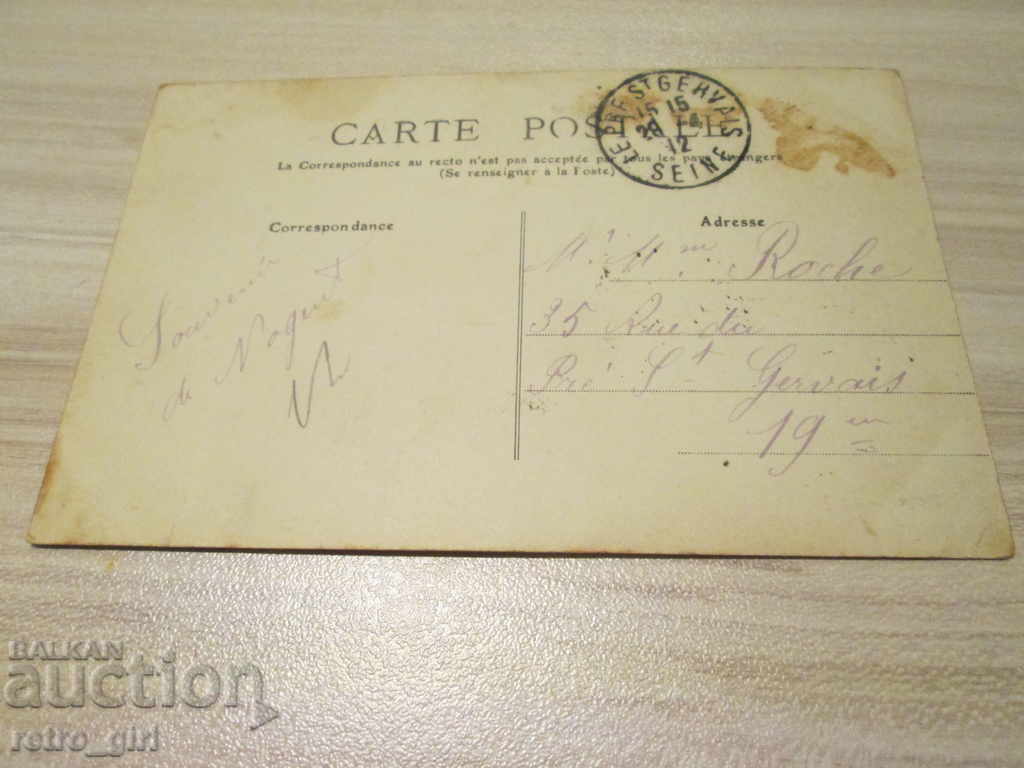 CARTE POSTALE
La Correspondance au recto n'est pas acceptée par tous les pays étrangers
(Se renseigner à la Poste)
LE PRE ST GERVAIS
15 15
28 -4
12
SEINE
Correspondance
Souvenir
de Nogent
Adresse
Mr Mm Roche
35 Rue du
Pré St Gervais
19 m
BALKAN
auction
retro_girl